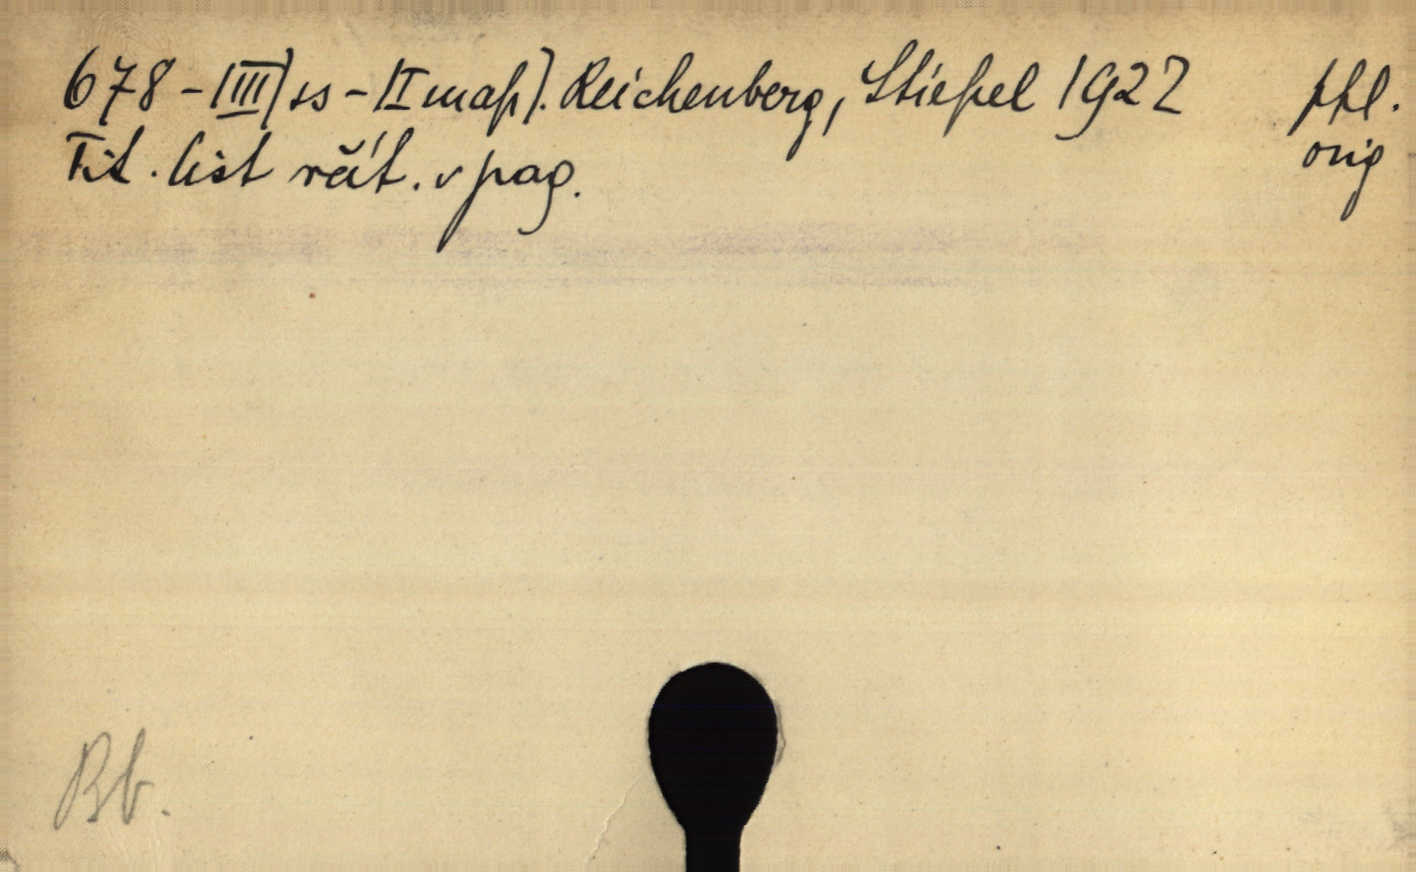 678 - (III) ss - (I map). Reichenberg, Stiepel 1922 ppl.
Tit. list včít. v pag. orig
Bb.